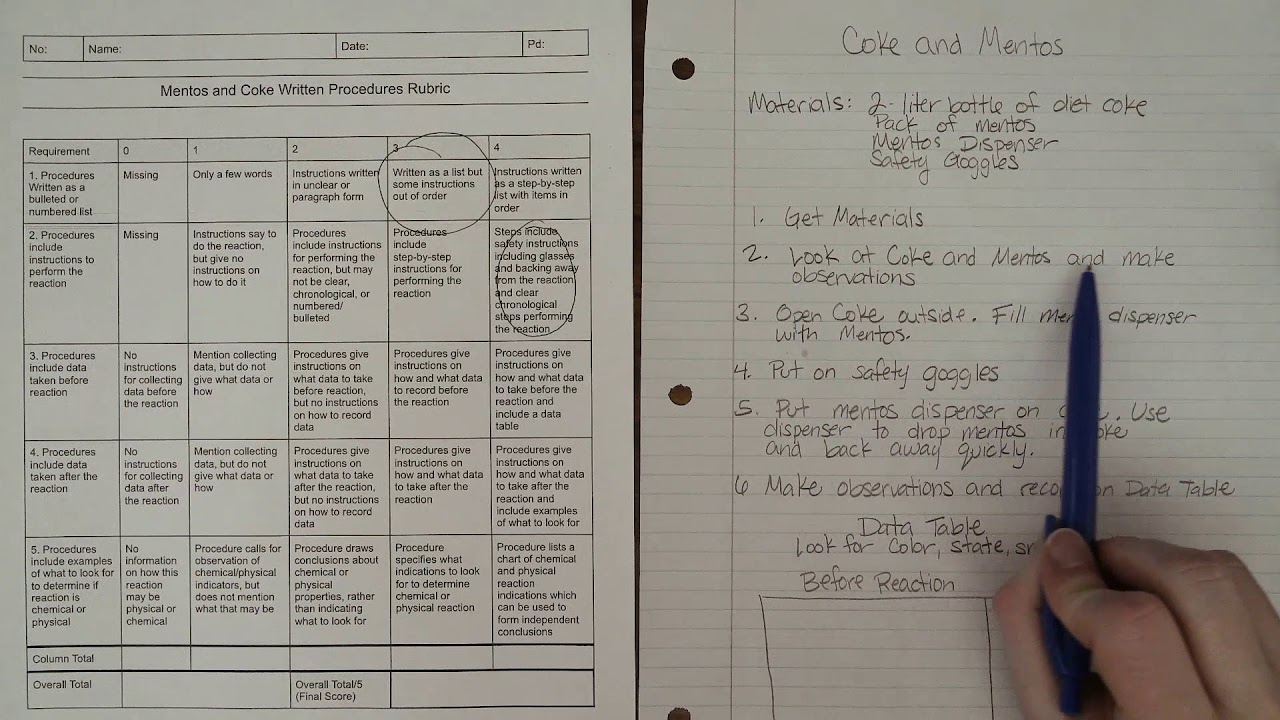 No: Name: Date: Pd:
Mentos and Coke Written Procedures Rubric
Requirement 0 1 2 3 4
1. Procedures
Written as a
bulleted or
numbered list
Missing
Only a few words
Instructions written
in unclear or
paragraph form
Written as a list but
some instructions
out of order
Instructions written
as a step-by-step
list with items in
order
2. Procedures
include
instructions to
perform the
reaction
Missing
Instructions say to
do the reaction,
but give no
instructions on
how to do it
Procedures
include instructions
for performing the
reaction, but may
not be clear,
chronological, or
numbered/
bulleted
Procedures
include
step-by-step
instructions for
performing the
reaction
Steps include
safety instructions
including glasses
and backing away
from the reaction
and clear
chronological
steps performing
the reaction
3. Procedures
include data
taken before
reaction
No
instructions
for collecting
data before
the reaction
Mention collecting
data, but do not
give what data or
how
Procedures give
instructions on
what data to take
before reaction,
but no instructions
on how to record
data
Procedures give
instructions on
how and what data
to record before
the reaction
Procedures give
instructions on
how and what data
to take before the
reaction and
include a data
table
4. Procedures
include data
taken after the
reaction
No
instructions
for collecting
data after
the reaction
Mention collecting
data, but do not
give what data or
how
Procedures give
instructions on
what data to take
after the reaction,
but no instructions
on how to record
data
Procedures give
instructions on
how and what data
to take after the
reaction
Procedures give
instructions on
how and what data
to take after the
reaction and
include examples
of what to look for
5. Procedures
include examples
of what to look for
to determine if
reaction is
chemical or
physical
No
information
on how this
reaction
may be
physical or
chemical
Procedure calls for
observation of
chemical/physical
indicators, but
does not mention
what that may be
Procedure draws
conclusions about
chemical or
physical
properties, rather
than indicating
what to look for
Procedure
specifies what
indications to look
for to determine
chemical or
physical reaction
Procedure lists a
chart of chemical
and physical
reaction
indications which
can be used to
form independent
conclusions
Column Total
Overall Total
Overall Total/5
(Final Score)
Coke and Mentos
Materials: 2-liter bottle of diet coke
Pack of mentos
Mentos Dispenser
Safety Goggles
1. Get Materials
2. Look at Coke and Mentos and make
observations
3. Open Coke outside. Fill dispenser
with Mentos.
4. Put on safety goggles
5. Put mentos dispenser on . Use
dispenser to drop mentos in
and back away quickly.
6 Make observations and on Data Table
Data Table
Look for Color, state,
Before Reaction